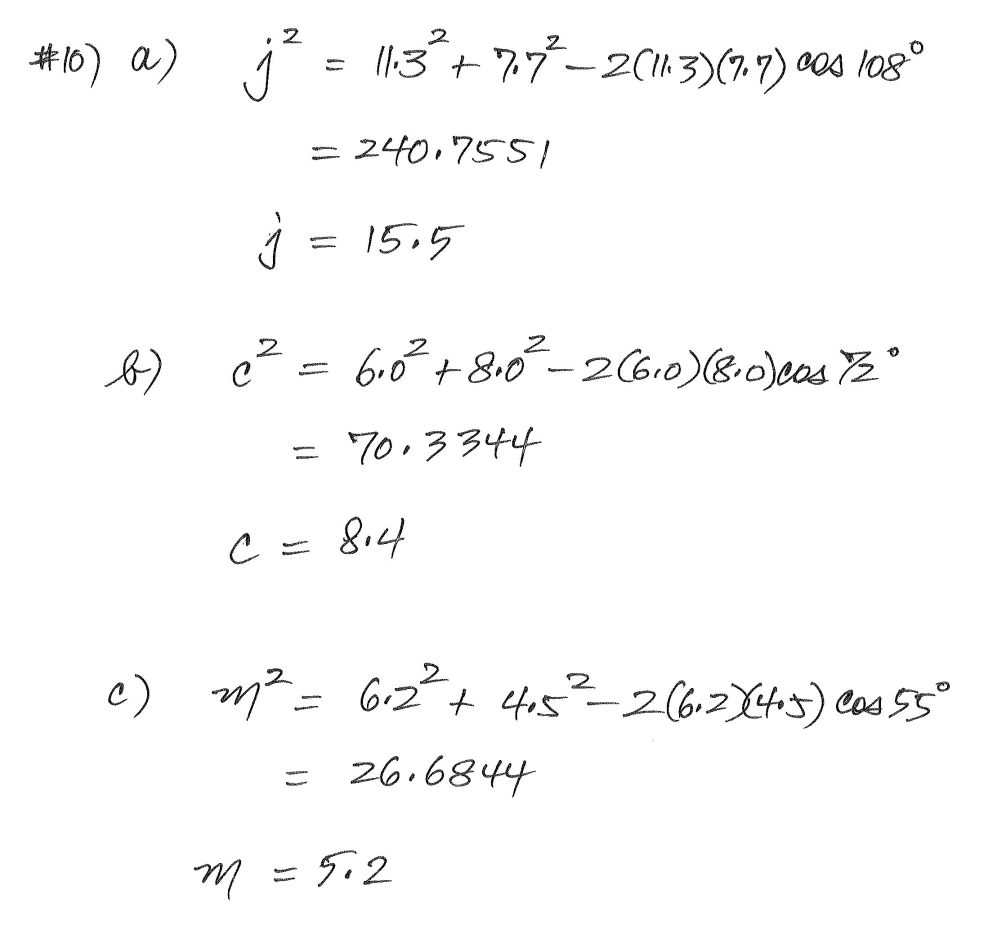 #10) a) j² = 11.3² + 7.7² − 2(11.3)(7.7) cos 108°
= 240.7551
j = 15.5
b) c² = 6.0² + 8.0² − 2(6.0)(8.0) cos 72°
= 70.3344
c = 8.4
c) m² = 6.2² + 4.5² − 2(6.2)(4.5) cos 55°
= 26.6844
m = 5.2